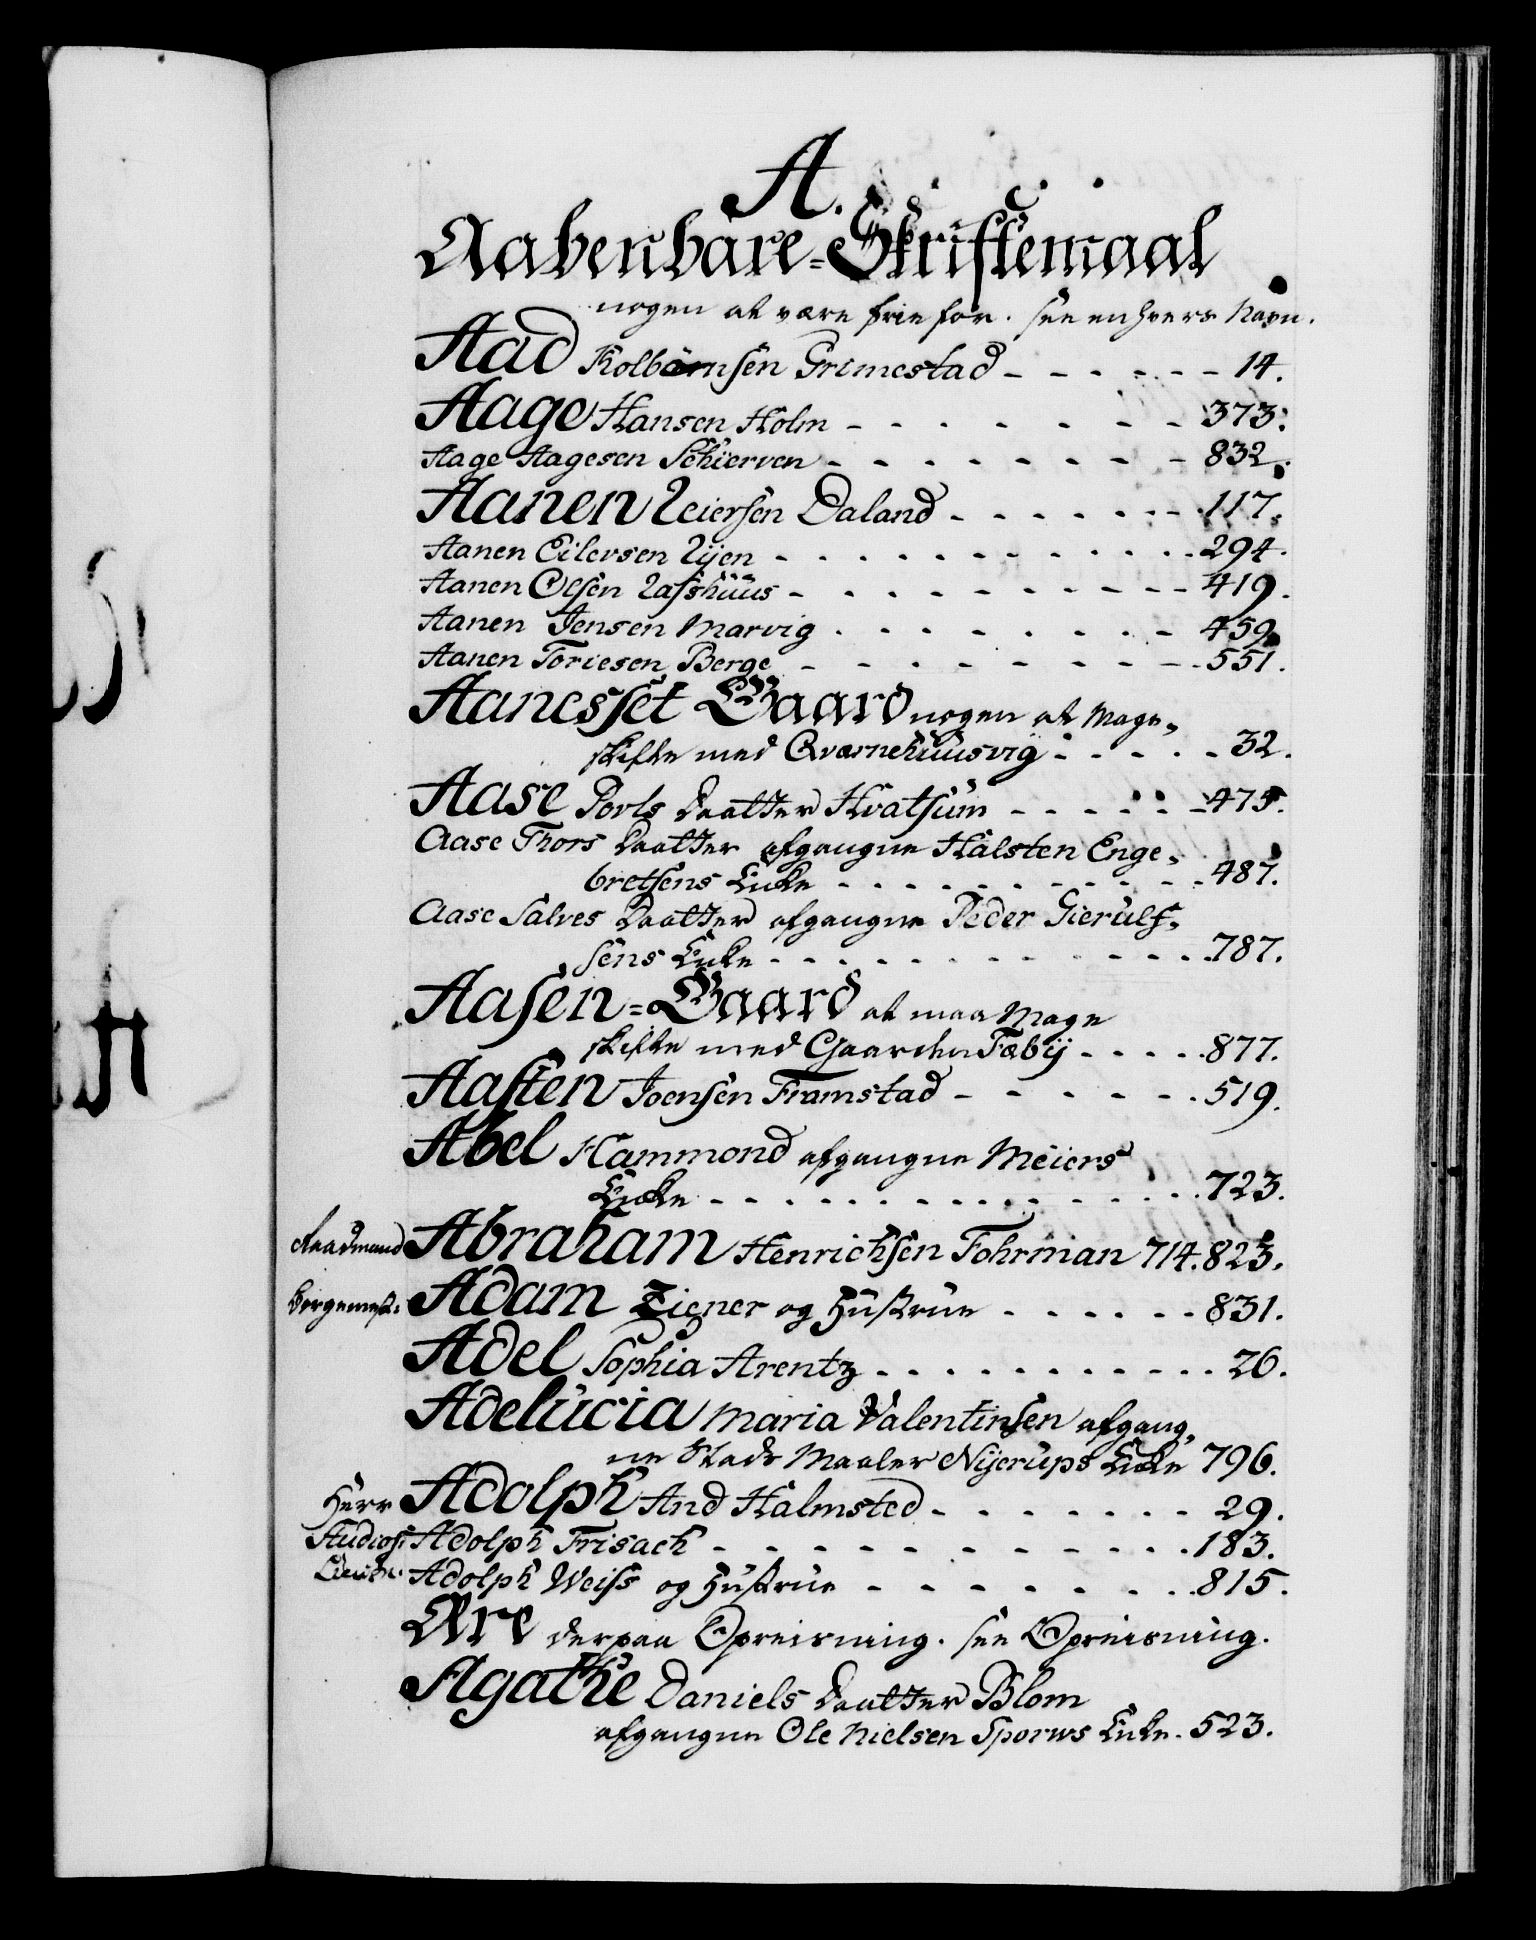 A.
Aabenbare-Skriftemaal
nogen at være frie for. see enhvers Navn.
Aad Kolbørnsen Grimestad - - - - - - 14.
Aage Hansen Holm - - - - - - - 373.
Aage Aagesen Schierven - - - - - - - - 832.
Aanen Leiersen Daland - - - - - - - 117.
Aanen Eilersen Lyen - - - - - - - - - - 294.
Aanen Olsen Lasshuus - - - - - - - - - 419.
Aanen Jensen Marvig - - - - - - - - 459.
Aanen Toriesen Berge - - - - - - - - 551.
Aanesset Gaard nogen at Mage-
skifte med Qværnehuusvig - - - - - 32.
Aase Povls Daatter Hvatsum - - - - - - 475.
Aase Thors Daatter afgangne Halsten Enge-
bretsens Encke - - - - - - - - - - 487.
Aase Salves Daatter afgangne Peder Gierulf-
sens Encke - - - - - - - - - - - 787.
Aasen-Gaard at maa Mage
skifte med Gaarden Fæby - - - - - 877.
Aasten Joensen Framstad - - - - - - 519.
Abel Hammond afgangne Meiers
Encke - - - - - - - - - - - - - 723.
Raadmand Abraham Henrichsen Fohrman 714. 823.
Borgemest: Adam Ziener og Hustrue - - - - - - 831.
Adel Sophia Arentz - - - - - - - - - - 26.
Adelucia Maria Valentinsen afgang-
ne Stads Maaler Nyerups Encke 796.
Herr Adolph And Halmsted - - - - - - - 29.
Studios: Adolph Frisach - - - - - - - - - - 183.
Lieutn. Adolph Weiss og Hustrue - - - - - - - - 815.
Ære derpaa Opreisning. see Opreisning.
Agathe Daniels Daatter Blom
afgangne Ole Nielsen Sporws Encke. 523.